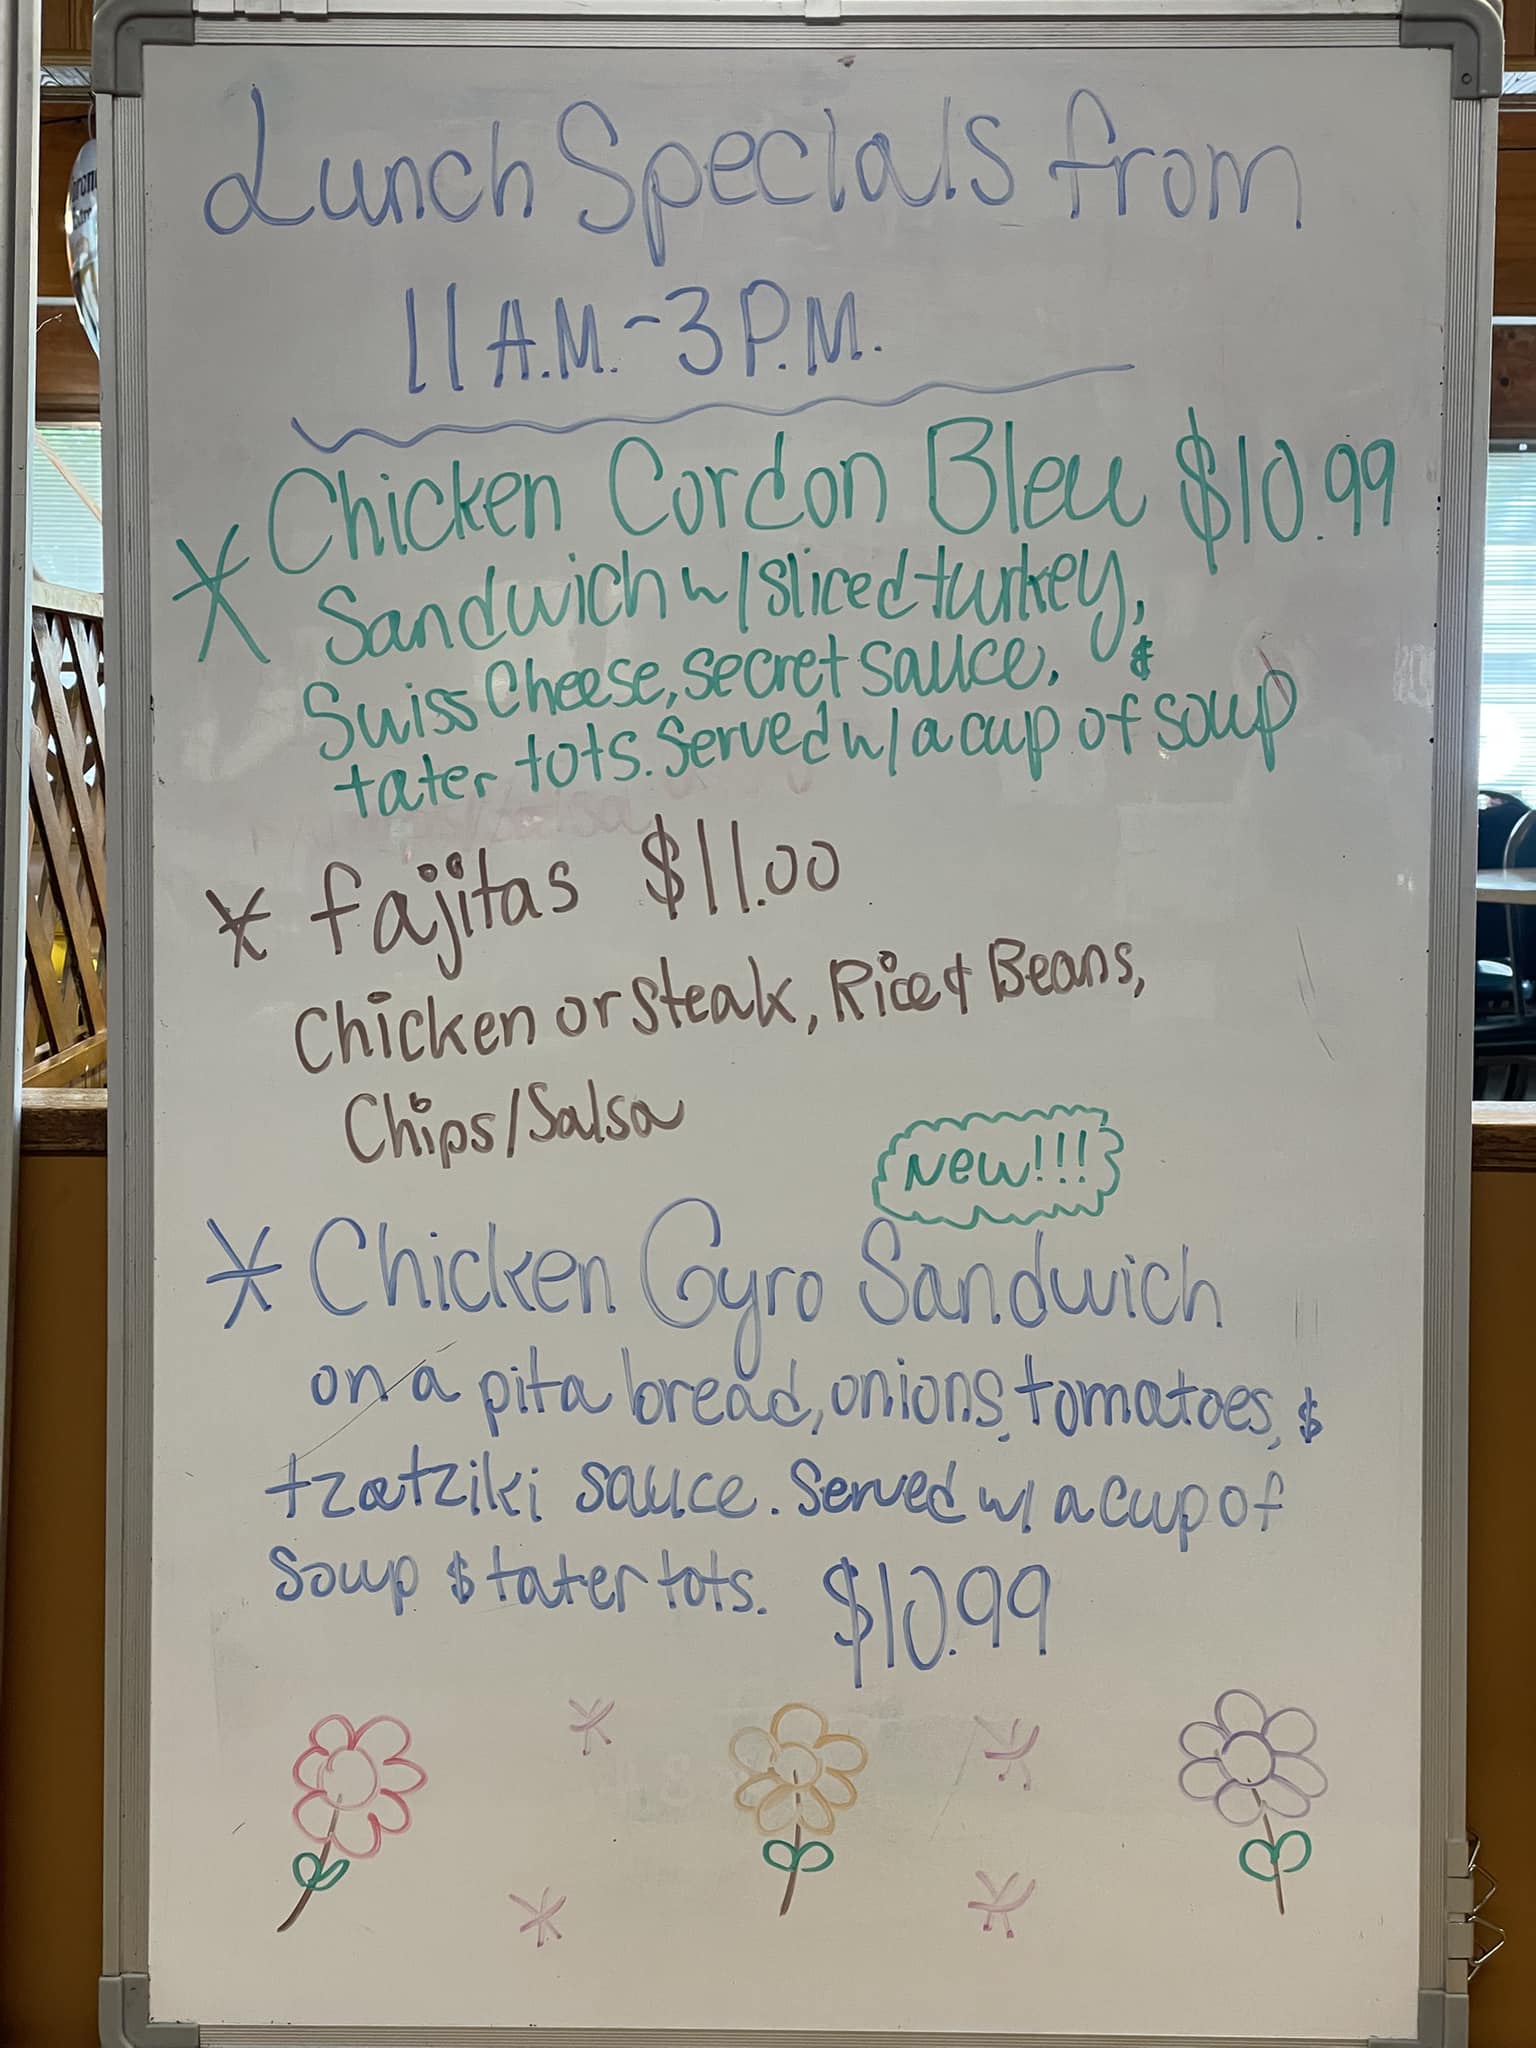 Lunch Specials from
11 A.M.-3 P.M.
* Chicken Cordon Bleu $10.99
Sandwich w/ sliced turkey,
Swiss Cheese, secret sauce, &
tater tots. Served w/ a cup of soup
* fajitas $11.00
Chicken or Steak, Rice & Beans,
Chips/Salsa
New!!!
* Chicken Gyro Sandwich
on a pita bread, onions, tomatoes, &
tzatziki sauce. Served w/ a cup of
soup & tater tots. $10.99